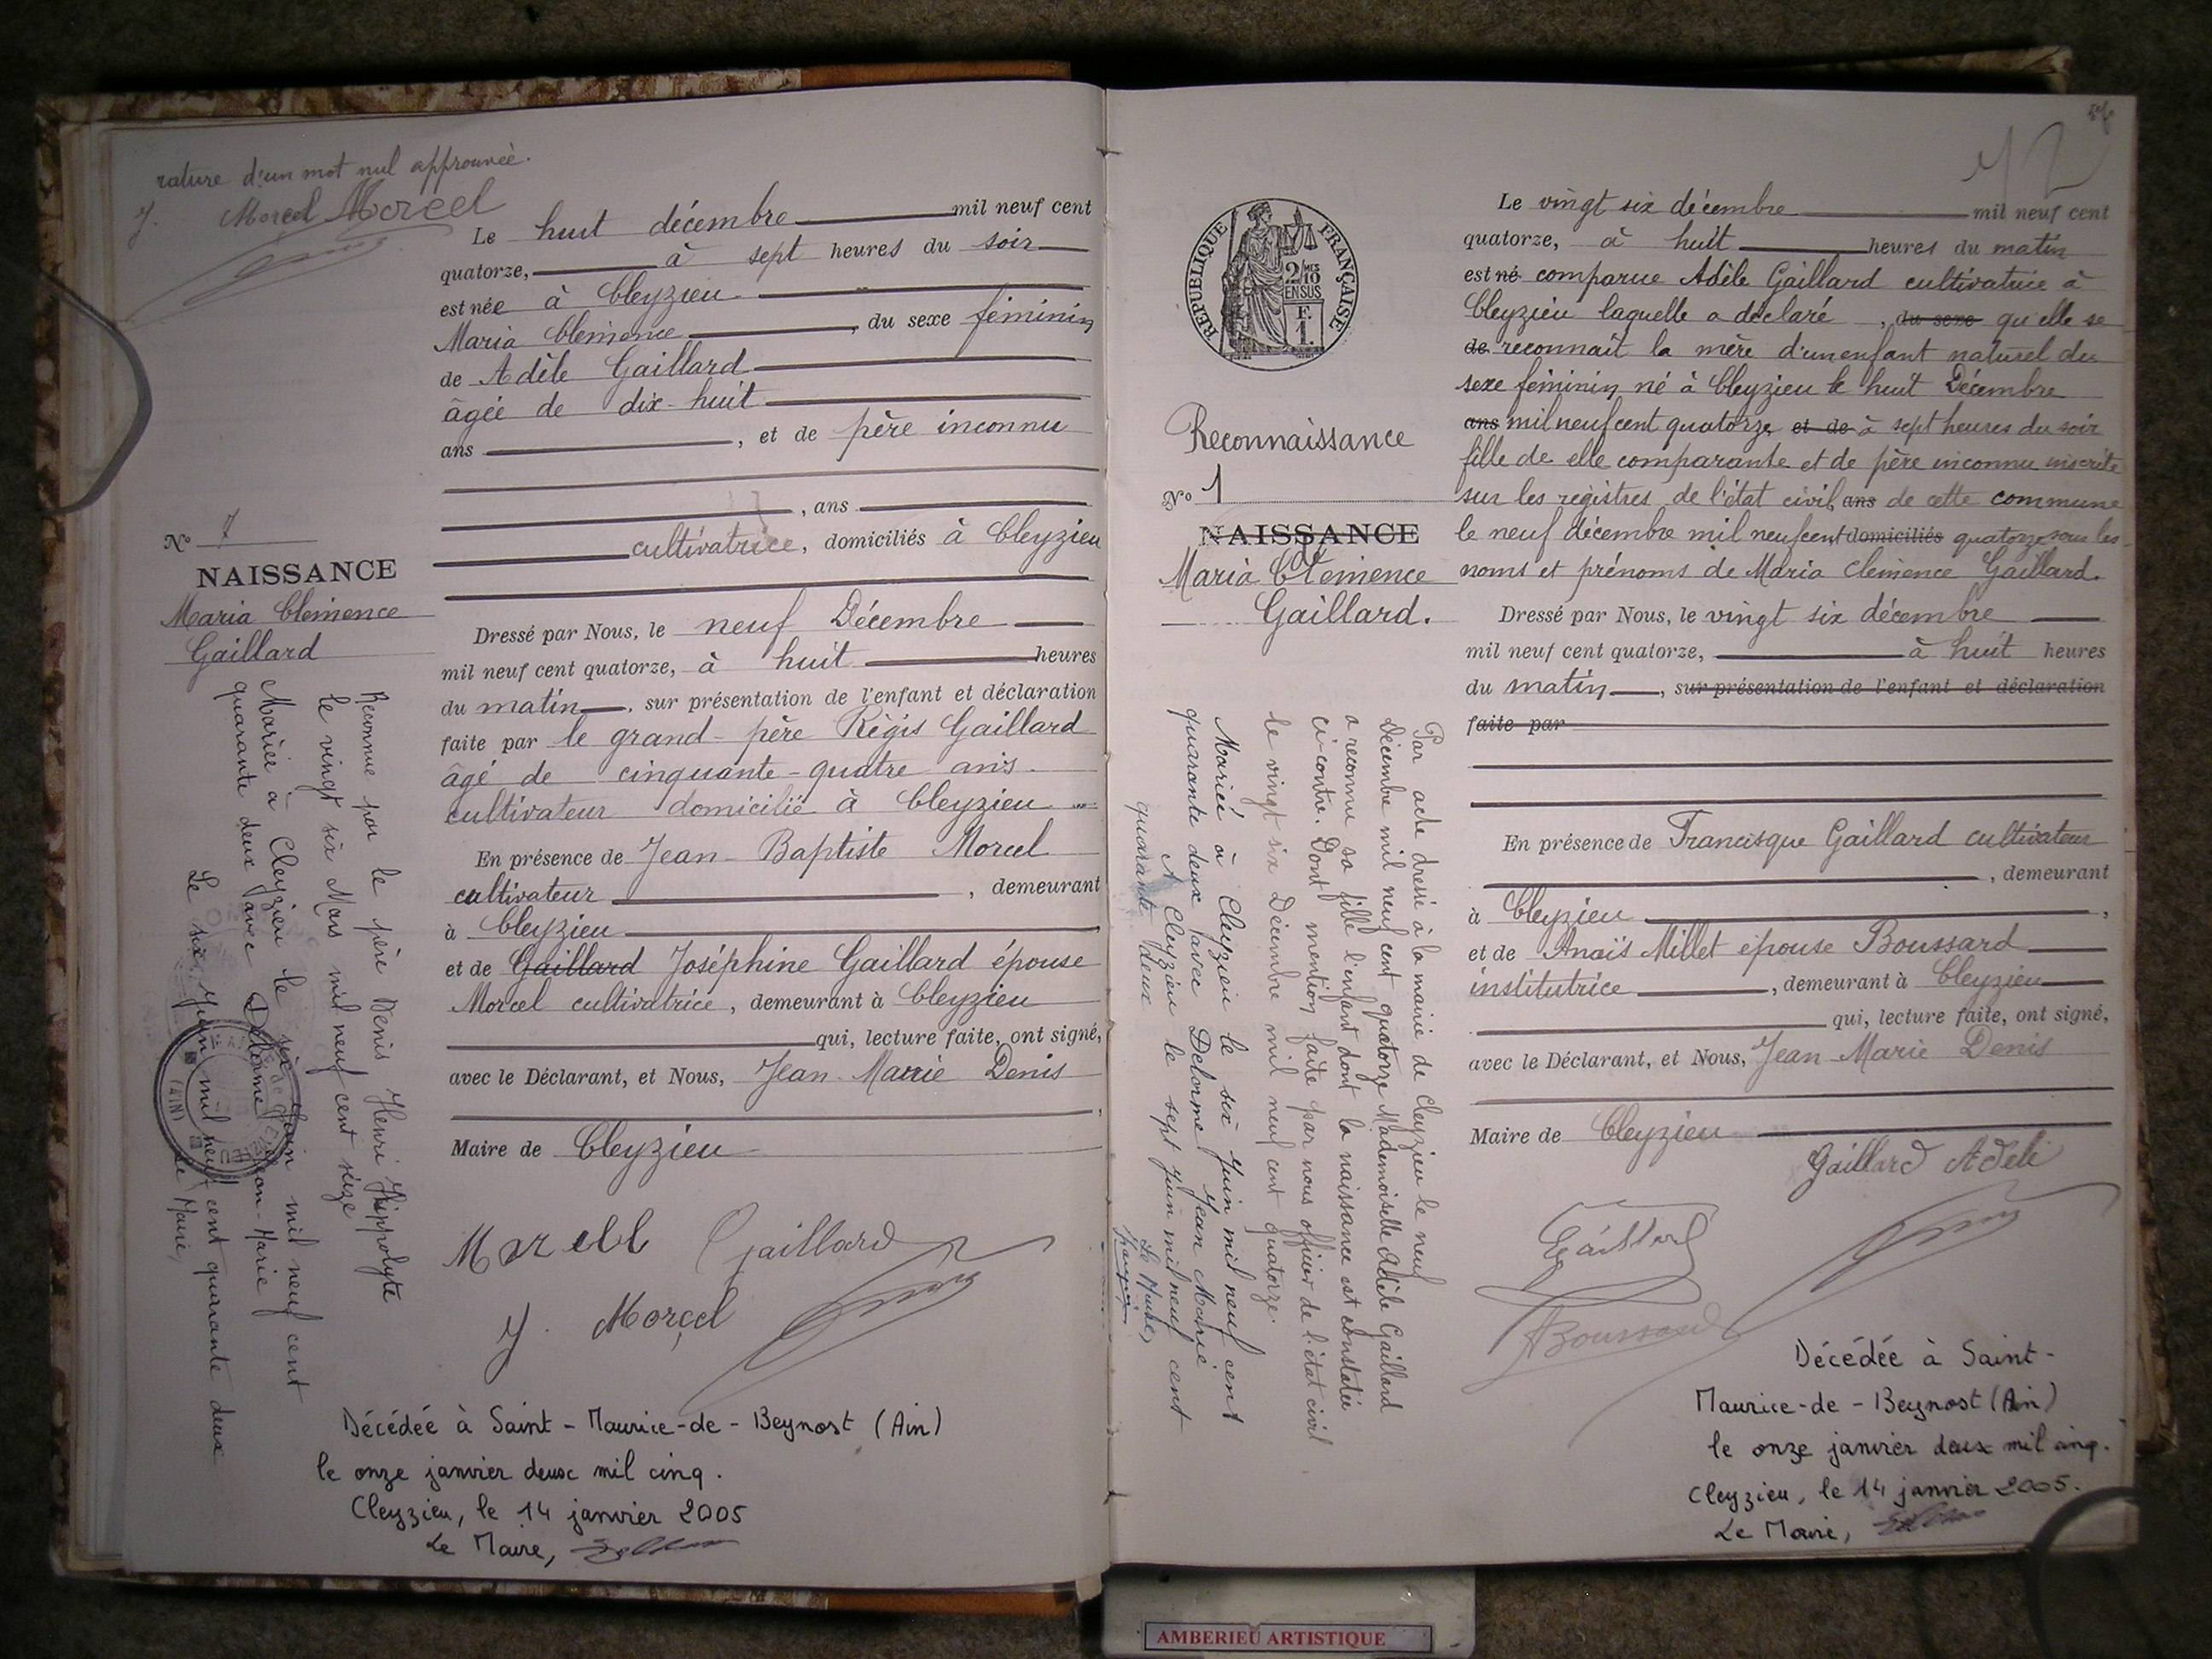 rature d'un mot nul approuvée.
J. Morcel Morcel
Le huit décembre mil neuf cent
quatorze, à sept heures du soir
est née à Cleyzieu
Maria Clemence, du sexe féminin
de Adèle Gaillard
âgée de dix-huit
ans, et de père inconnu
, ans
cultivatrice, domiciliés à Cleyzieu
Nº 7
NAISSANCE
Maria Clemence
Gaillard
Dressé par Nous, le neuf Décembre
mil neuf cent quatorze, à huit heures
du matin, sur présentation de l'enfant et déclaration
faite par le grand-père Régis Gaillard
âgé de cinquante-quatre ans
cultivateur domicilié à Cleyzieu
En présence de Jean-Baptiste Morcel
cultivateur, demeurant
à Cleyzieu
et de Gaillard Joséphine Gaillard épouse
Morcel cultivatrice, demeurant à Cleyzieu
qui, lecture faite, ont signé,
avec le Déclarant, et Nous, Jean-Marie Denis
Maire de Cleyzieu
Morcel Gaillard
J. Morcel
Reconnue par le père Denis Henri Hippolyte
le vingt six Mars mil neuf cent seize
Mariée à Cleyzieu le six Juin mil neuf cent
quarante deux avec Delorme Jean-Marie
Le six Juin mil neuf cent quarante deux
Le Maire,
(AIN)
Décédée à Saint-Maurice-de-Beynost (Ain)
le onze janvier deux mil cinq.
Cleyzieu, le 14 janvier 2005
Le Maire,
REPUBLIQUE FRANÇAISE
2/10 MES
EN SUS
F.
1.
Reconnaissance
Nº 1
NAISSANCE
Maria Clemence
Gaillard.
Le vingt six décembre mil neuf cent
quatorze, à huit heures du matin
est né comparue Adèle Gaillard cultivatrice à
Cleyzieu laquelle a déclaré, du sexe qu'elle se
de reconnaît la mère d'un enfant naturel du
sexe féminin né à Cleyzieu le huit Décembre
ans mil neuf cent quatorze et de à sept heures du soir
fille de elle comparante et de père inconnu inscrite
sur les registres de l'état civil, ans de cette commune
le neuf décembre mil neuf cent domiciliés quatorze sous les
noms et prénoms de Maria Clemence Gaillard.
Dressé par Nous, le vingt six décembre
mil neuf cent quatorze, à huit heures
du matin, sur présentation de l'enfant et déclaration
faite par
En présence de Francisque Gaillard cultivateur
, demeurant
à Cleyzieu,
et de Anaïs Millet épouse Boussard
institutrice, demeurant à Cleyzieu
qui, lecture faite, ont signé,
avec le Déclarant, et Nous, Jean-Marie Denis
Maire de Cleyzieu
Gaillard Adele
Gaillard
ABoussard
Par acte dressé à la mairie de Cleyzieu le neuf
Décembre mil neuf cent quatorze Mademoiselle Adèle Gaillard
a reconnu sa fille l'enfant dont la naissance est constatée
ci-contre. Dont mention faite par nous officier de l'état civil
le vingt six Décembre mil neuf cent quatorze.
Mariée à Cleyzieu le six Juin mil neuf cent
quarante deux avec Delorme Jean Marie
A Cleyzieu le sept Juin mil neuf cent
quarante deux
Le Maire,
Décédée à Saint-
Maurice-de-Beynost (Ain)
le onze janvier deux mil cinq.
Cleyzieu, le 14 janvier 2005.
Le Maire,
AMBERIEU ARTISTIQUE